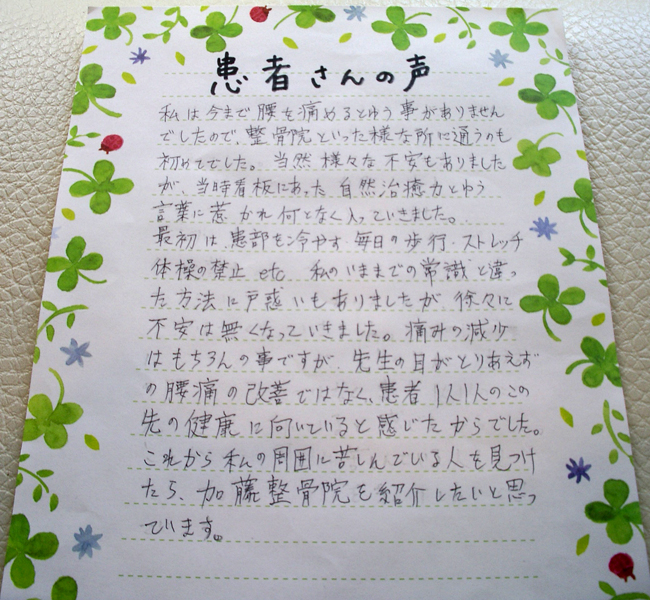 患者さんの声
私は今まで腰を痛めるとゆう事がありません
でしたので、整骨院といった様な所に通うのも
初めてでした。当然様々な不安もありました
が、当時看板にあった自然治癒力とゆう
言葉に惹かれ何となく入っていきました。
最初は患部を冷やす・毎日の歩行・ストレッチ
体操の禁止 etc 私のいままでの常識と違っ
た方法に戸惑いもありましたが徐々に
不安は無くなっていきました。痛みの減少
はもちろんの事ですが、先生の目がとりあえず
の腰痛の改善ではなく、患者1人1人のこの
先の健康に向いていると感じたからでした。
これから私の周囲に苦しんでいる人を見つけ
たら、加藤整骨院を紹介したいと思っ
ています。